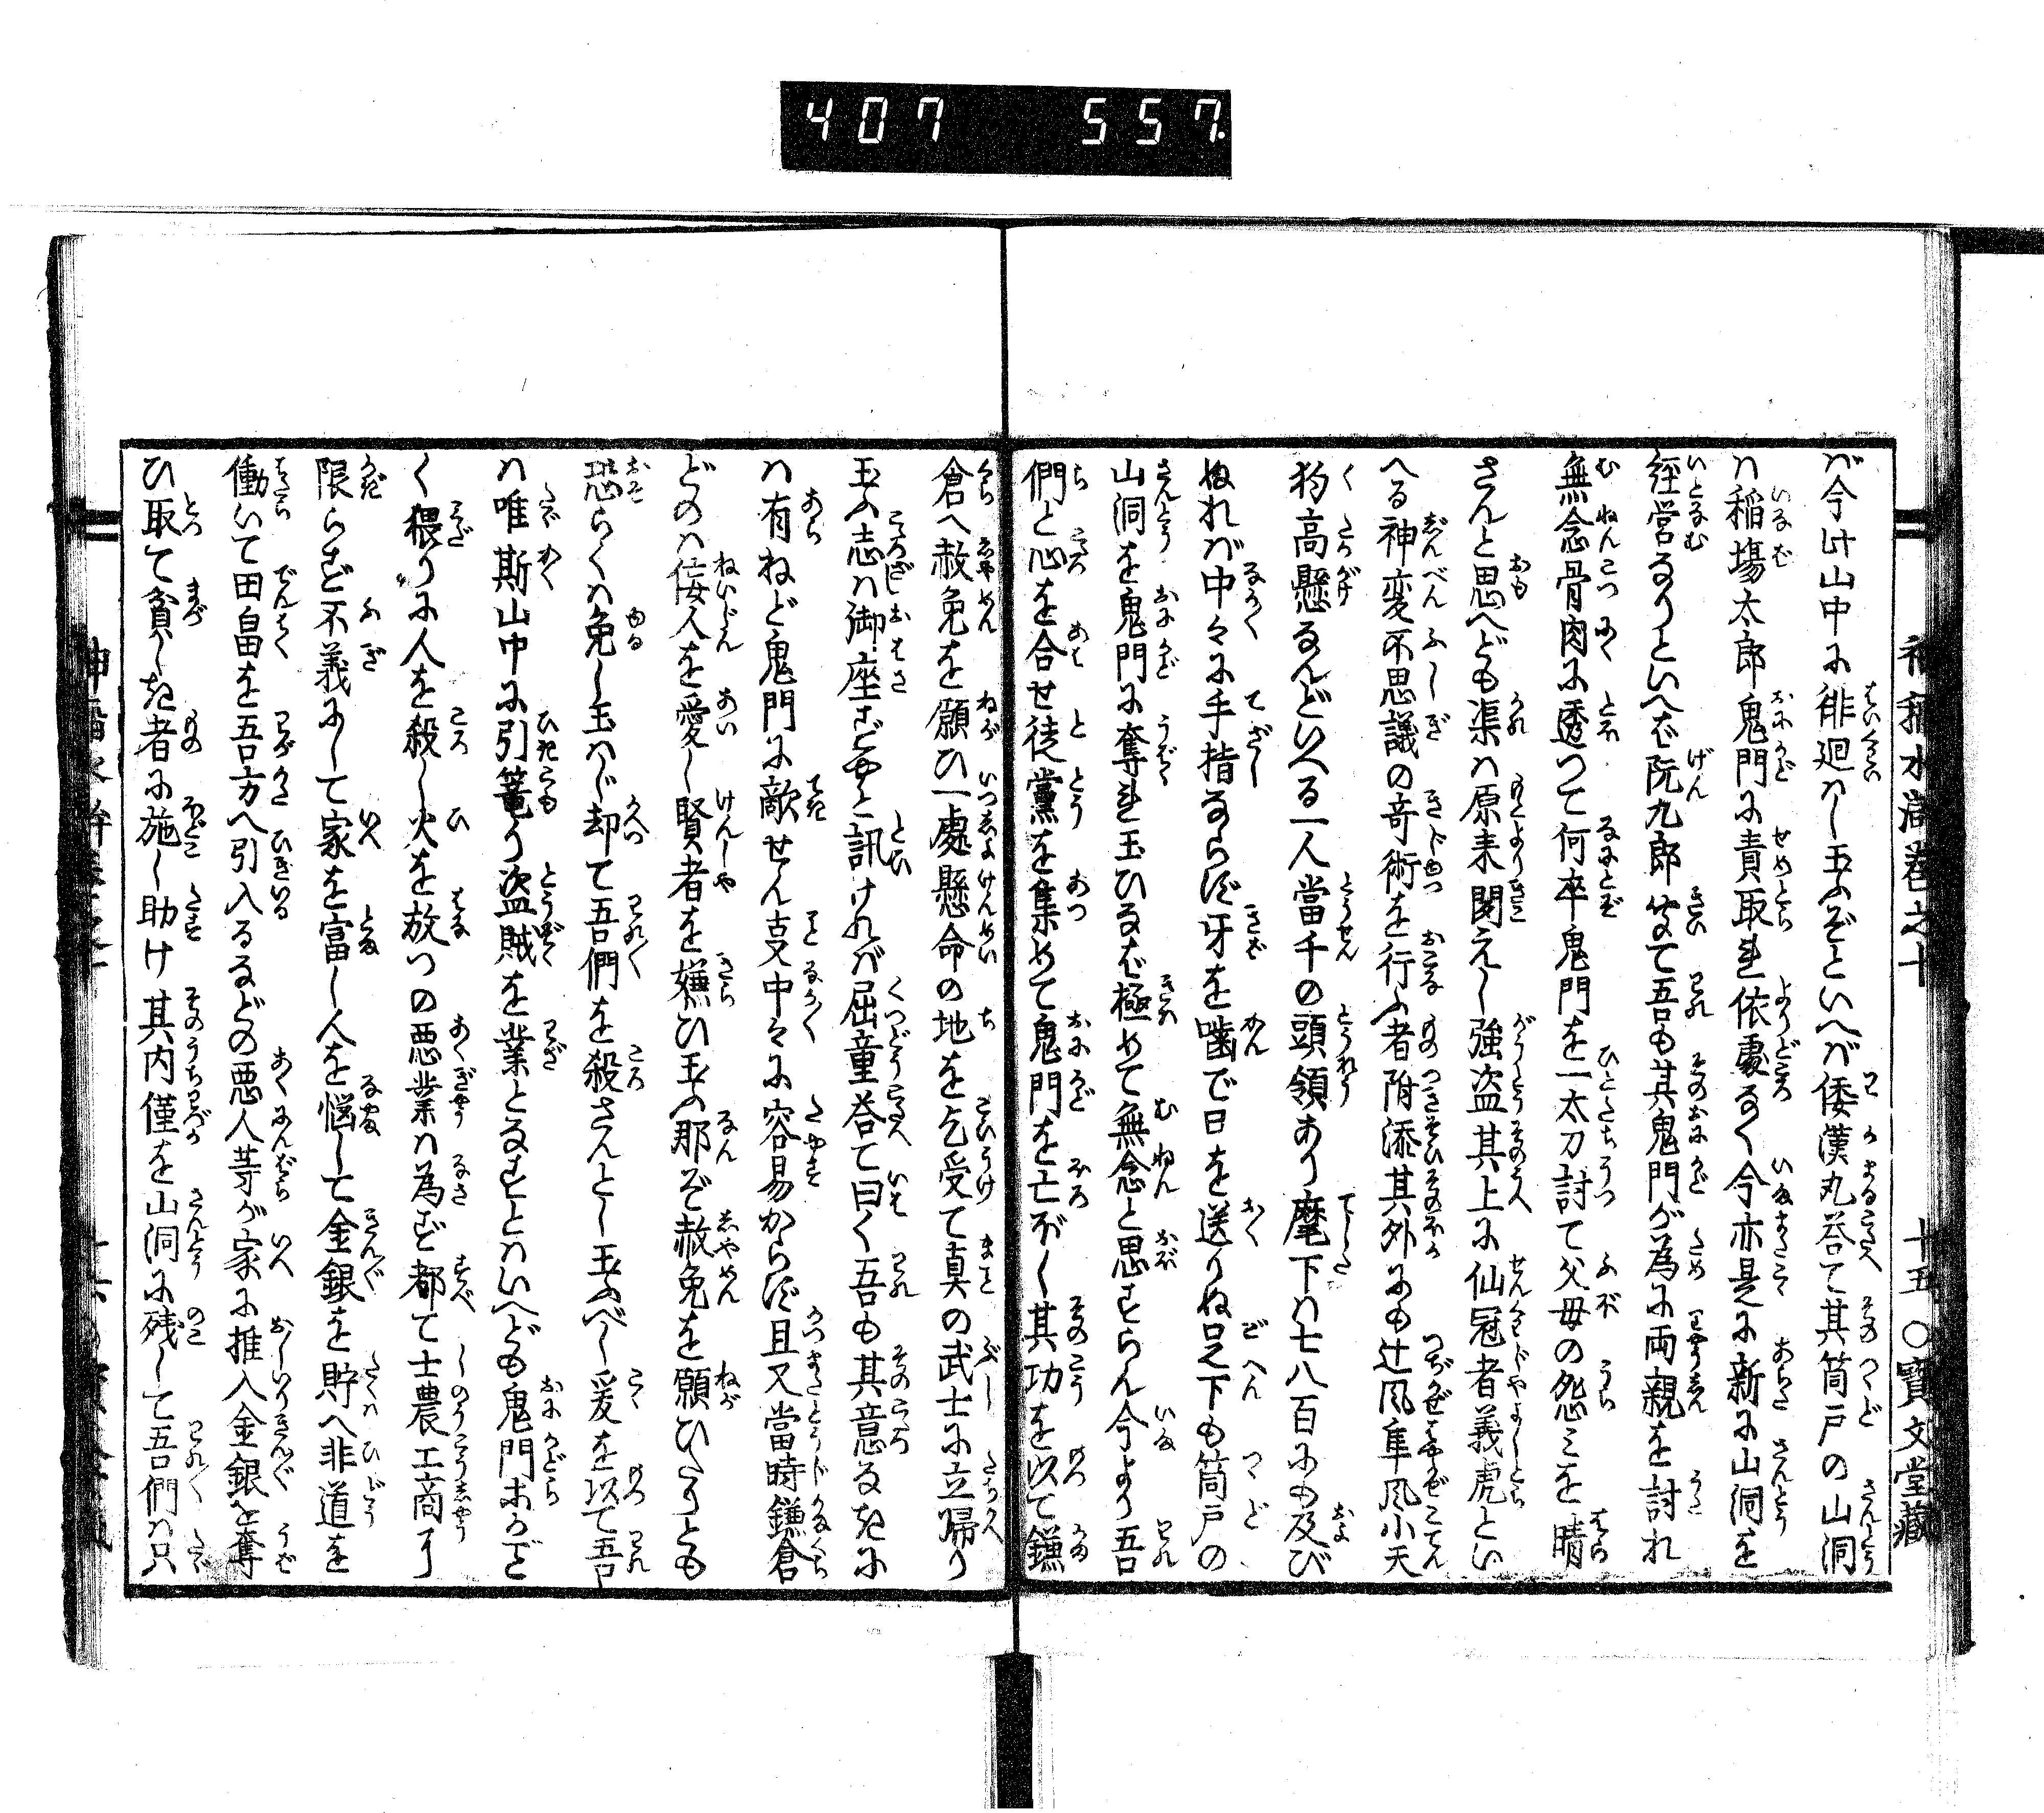 407 557.
水滸 巻之十 十五 〇寶文堂藏
バ今此山中に徘廻ハし玉ふぞといへバ倭漢丸答て其筒戸の山洞
ハ稲塲太郎鬼門に責取れ依處なく今亦是に新に山洞を
経営なりといへど阮九郎笑て吾も其鬼門が為に両親を討れ
無念骨肉に透つて何卒鬼門を一太刀討て父母の怨ミを晴
さんと思へども渠ハ原来聞えし強盗其上に仙冠者義虎とい
へる神変不思議の奇術を行ふ者附添其外にも辻風隼風小天
狗高懸なんどいへる一人當千の頭領あり麾下ハ七八百にも及び
ぬれバ中々に手指ならず牙を噛で日を送りぬ足下も筒戸の
山洞を鬼門に奪れ玉ひなば極めて無念と思すらん今より吾
們と心を合せ徒黨を集めて鬼門を亡ぼし其功を以て鎌
倉へ赦免を願ひ一處懸命の地を乞受て真の武士に立帰り
玉ふ志ハ御座ずやと訊けれバ屈童答て曰く吾も其意なきに
ハ有ねど鬼門に敵せん㕝中々に容易からず且又當時鎌倉
どのハ佞人を愛し賢者を嫌ひ玉へバ那ぞ赦免を願ひたりとも
恐らくハ免し玉ハじ却て吾們を殺さんとし玉ふべし爰を以て吾
ハ唯斯山中に引篭り盗賊を業となすとハいへども鬼門ホがど
く猥りに人を殺し火を放つの悪業ハ為ず都て士農工商に
限らず不義にして家を富し人を悩して金銀を貯へ非道を
働いて田畠を吾方へ引入るなどの悪人等が家に推入金銀を奪
ひ取て貧しき者に施し助け其内僅を山洞に残して吾們ハ只